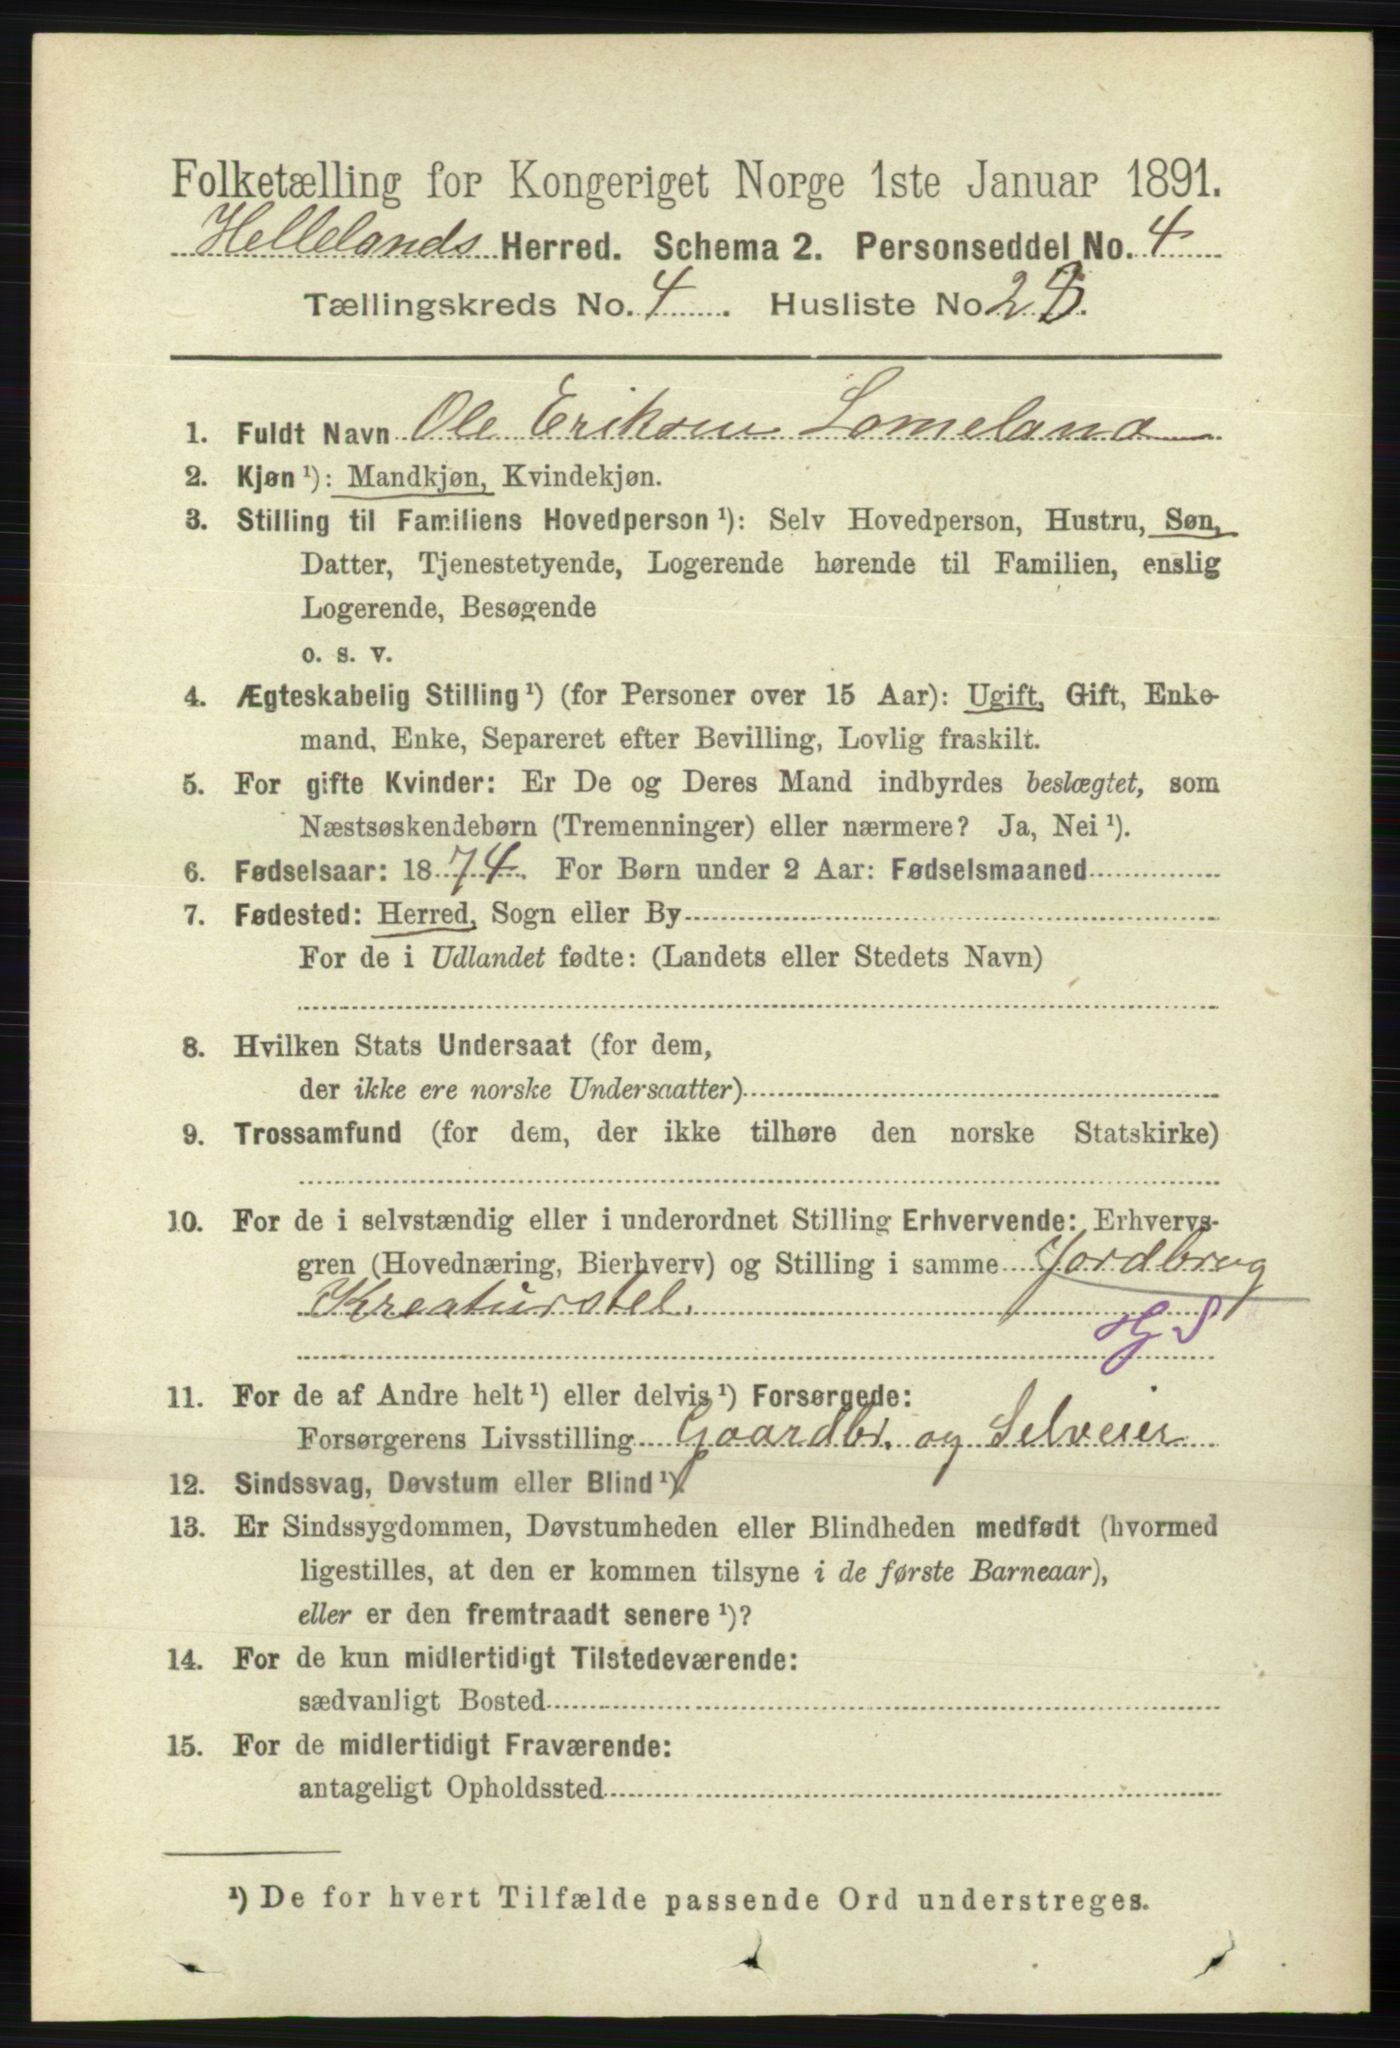 Folketælling for Kongeriget Norge 1ste Januar 1891.
Hellelands Herred. Schema 2. Personseddel No. 4
Tællingskreds No. 4. Husliste No 23.
1. Fuldt Navn Ole Eriksen Lomeland
2. Kjøn ¹): Mandkjøn, Kvindekjøn.
3. Stilling til Familiens Hovedperson ¹): Selv Hovedperson, Hustru, Søn,
Datter, Tjenestetyende, Logerende hørende til Familien, enslig
Logerende, Besøgende
o. s. v.
4. Ægteskabelig Stilling ¹) (for Personer over 15 Aar): Ugift, Gift, Enke-
mand, Enke, Separeret efter Bevilling, Lovlig fraskilt.
5. For gifte Kvinder: Er De og Deres Mand indbyrdes beslægtet, som
Næstsøskendebørn (Tremenninger) eller nærmere? Ja, Nei ¹).
6. Fødselsaar: 1874. For Børn under 2 Aar: Fødselsmaaned
7. Fødested: Herred, Sogn eller By
For de i Udlandet fødte: (Landets eller Stedets Navn)
8. Hvilken Stats Undersaat (for dem,
der ikke ere norske Undersaatter)
9. Trossamfund (for dem, der ikke tilhøre den norske Statskirke)
10. For de i selvstændig eller i underordnet Stilling Erhvervende: Erhvervs-
gren (Hovednæring, Bierhverv) og Stilling i samme Jordbrug
Kreaturstel.
Hj S
11. For de af Andre helt ¹) eller delvis ¹) Forsørgede:
Forsørgerens Livsstilling Gaardbr. og Selveier
12. Sindssvag, Døvstum eller Blind ¹).
13. Er Sindssygdommen, Døvstumheden eller Blindheden medfødt (hvormed
ligestilles, at den er kommen tilsyne i de første Barneaar),
eller er den fremtraadt senere ¹)?
14. For de kun midlertidigt Tilstedeværende:
sædvanligt Bosted
15. For de midlertidigt Fraværende:
antageligt Opholdssted
¹) De for hvert Tilfælde passende Ord understreges.